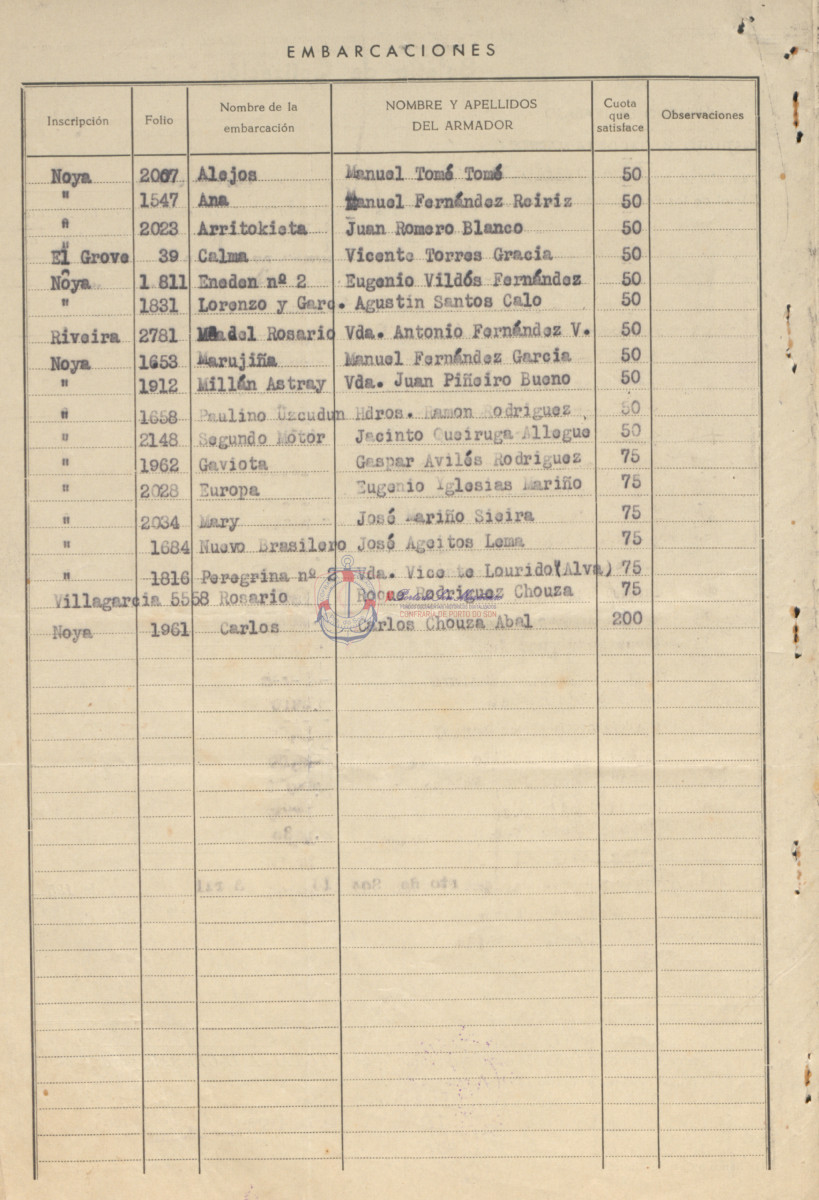 EMBARCACIONES
Inscripción Folio Nombre de la embarcación NOMBRE Y APELLIDOS DEL ARMADOR Cuota que satisface Observaciones
Noya 2007 Alejos Manuel Tomé Tomé 50
" 1547 Ana Manuel Fernández Reiriz 50
" 2023 Arritokieta Juan Romero Blanco 50
El Grove 39 Calma Vicente Torres Gracia 50
Noya 1.811 Eneden nº 2 Eugenio Vildós Fernández 50
" 1831 Lorenzo y Garc. Agustin Santos Calo 50
Riveira 2781 del Rosario Vda. Antonio Fernández V. 50
Noya 1653 Marujiña Manuel Fernández Garcia 50
" 1912 Millán Astray Vda. Juan Piñeiro Bueno 50
" 1658 Paulino Uzcudun Hdros. Ramon Rodriguez 50
" 2148 Segundo Motor Jacinto Queiruga Allegue 50
" 1962 Gaviota Gaspar Avilés Rodriguez 75
" 2028 Europa Eugenio Yglesias Mariño 75
" 2034 Mary José Mariño Sieira 75
" 1684 Nuevo Brasilero José Ageitos Lema 75
" 1816 Peregrina nº 2 Vda. Vicente Lourido (Alva) 75
Villagarcia 5558 Rosario Roque Rodriguez Chouza 75
CONFRARÍA DE PORTO DO SON
Noya 1961 Carlos Carlos Chouza Abal 200